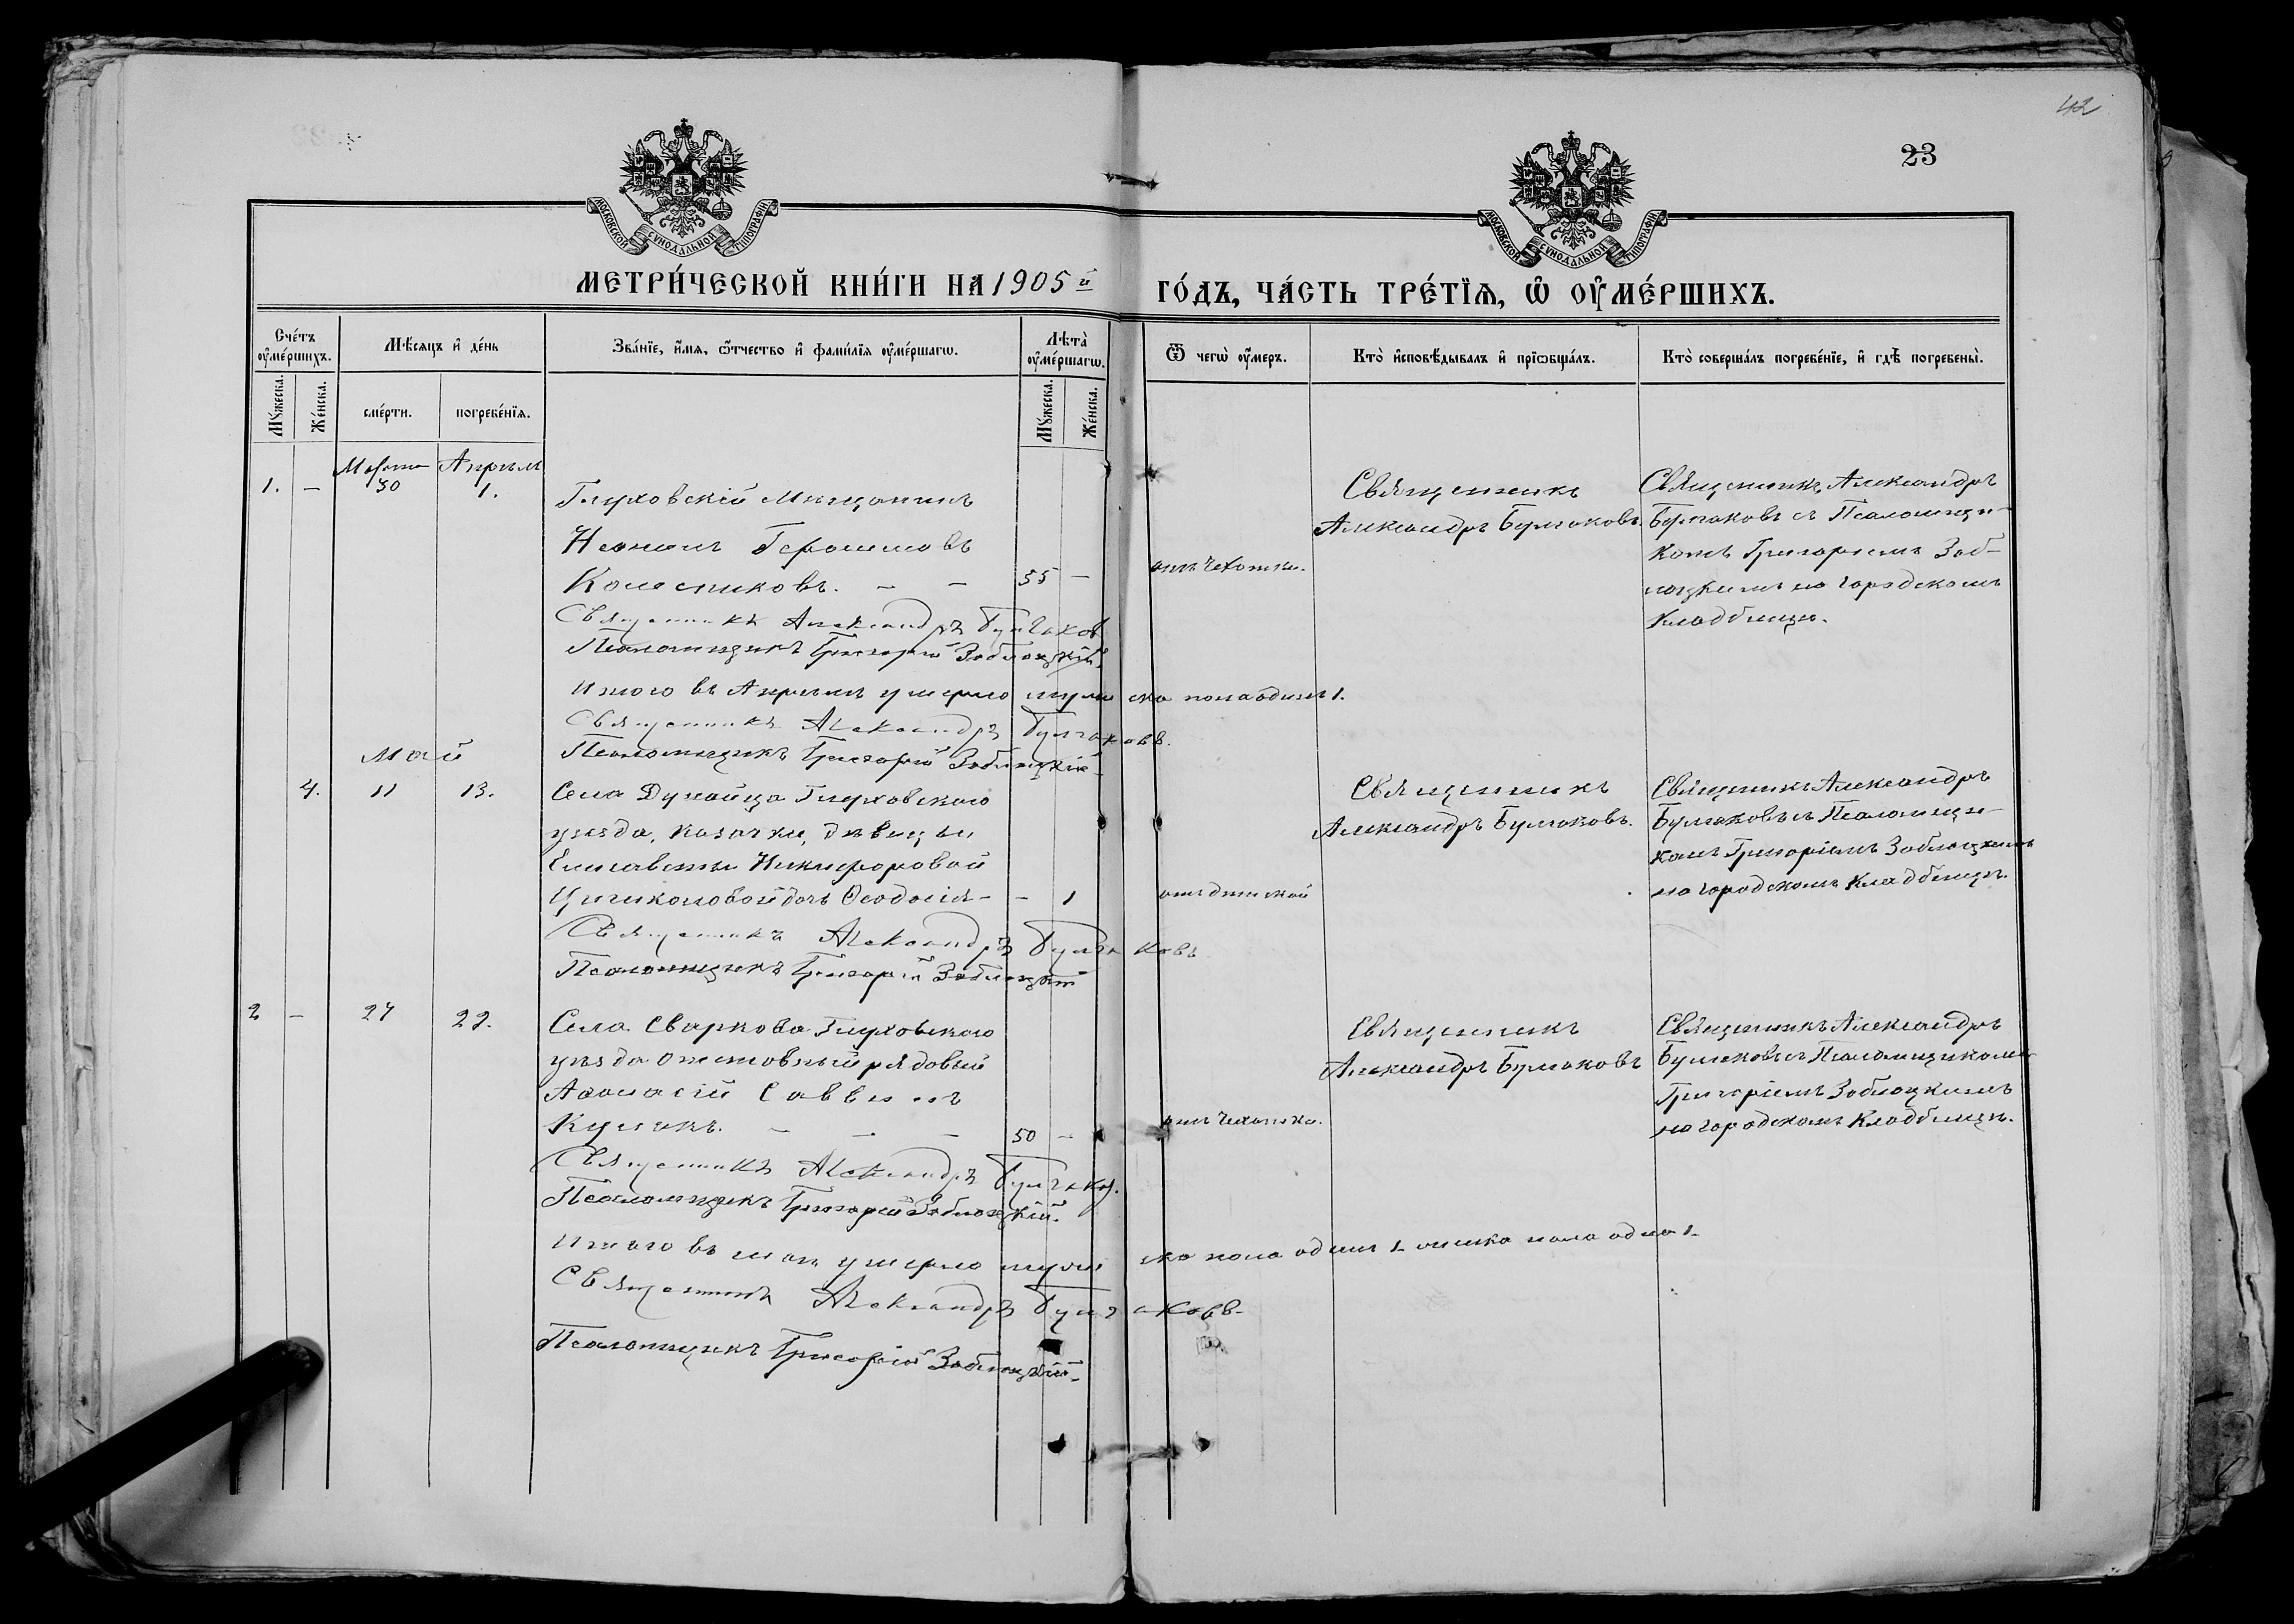 42
23
МОСКОВСКОЙ СѴНОДАЛЬНОЙ ТИПОГРАФІИ
МОСКОВСКОЙ СѴНОДАЛЬНОЙ ТИПОГРАФІИ
МЕТРИ́ЧЕСКОЙ КНИ́ГИ НА 1905 й ГО́ДЪ, ЧА́СТЬ ТРЕ́ТЇѦ, Ѡ҆ ОУ҆МЕ́РШИХЪ.
Сче́тъ оу҆ме́ршихъ.
Мꙋ́жеска.
Же́нска.
Мѣ́сѧцъ и҆ де́нь
сме́рти.
погребе́нїѧ.
Зва́нїе, и҆́мѧ, ѻ҆́тчество и҆ фами́лїѧ оу҆ме́ршагѡ.
Лѣ́та оу҆ме́ршагѡ.
Мꙋ́жеска.
Же́нска.
Ѿ чегѡ̀ оу҆́меръ.
Кто̀ и҆сповѣ́дывалъ и҆ прїѡбща́лъ.
Кто̀ соверша́лъ погребе́нїе, и҆ гдѣ̀ погребены̀.
Марта Апрѣля
1. — 30 1.
Глуховскій Мѣщанинъ
Герасимовъ
Колесниковъ. — — 55 —
отъ чахотки.
Священникъ
Александръ Булгаковъ.
Священникъ Александръ
Булгаковъ съ Псаломщи-
комъ Григоріемъ Заб-
лоцкимъ на городскомъ
кладбищѣ.
Священникъ Александръ Булгаков
Псаломщикъ Григорій Заблоцкій.
Итого въ Апрѣлѣ умерло мужеска пола одинъ 1.
Священникъ Александръ Булгаковъ.
Псаломщикъ Григорій Заблоцкій
Май
4. 11 13.
Села Дунайца Глуховского
уѣзда, казачки, дѣвицы
Елисаветы Никифоровой
дочь Ѳеодосія — — 1
Священникъ
Александръ Булгаковъ.
Священникъ Александръ
Булгаковъ съ Псаломщи-
комъ Григоріемъ Заблоцкимъ
на городскомъ кладбищѣ.
Священникъ Александръ Булгаковъ
Псаломщикъ Григорій Заблоцкій
2 —
Села Сваркова Глуховского
уѣзда отставный рядовый
Аѳанасій Саввинъ
— — — 50 —
отъ чахотки.
Священникъ
Александръ Булгаковъ
Священникъ Александръ
Булгаковъ съ Псаломщикомъ
Григоріемъ Заблоцкимъ
на городскомъ кладбищѣ.
Священникъ Александръ Булгаков.
Псаломщикъ Григорій Заблоцкій.
Итого въ маѣ умерло мужеска пола одинъ 1 женска пола одна 1
Священникъ Александръ Булгаковъ
Псаломщикъ Григорій Заблоцкій